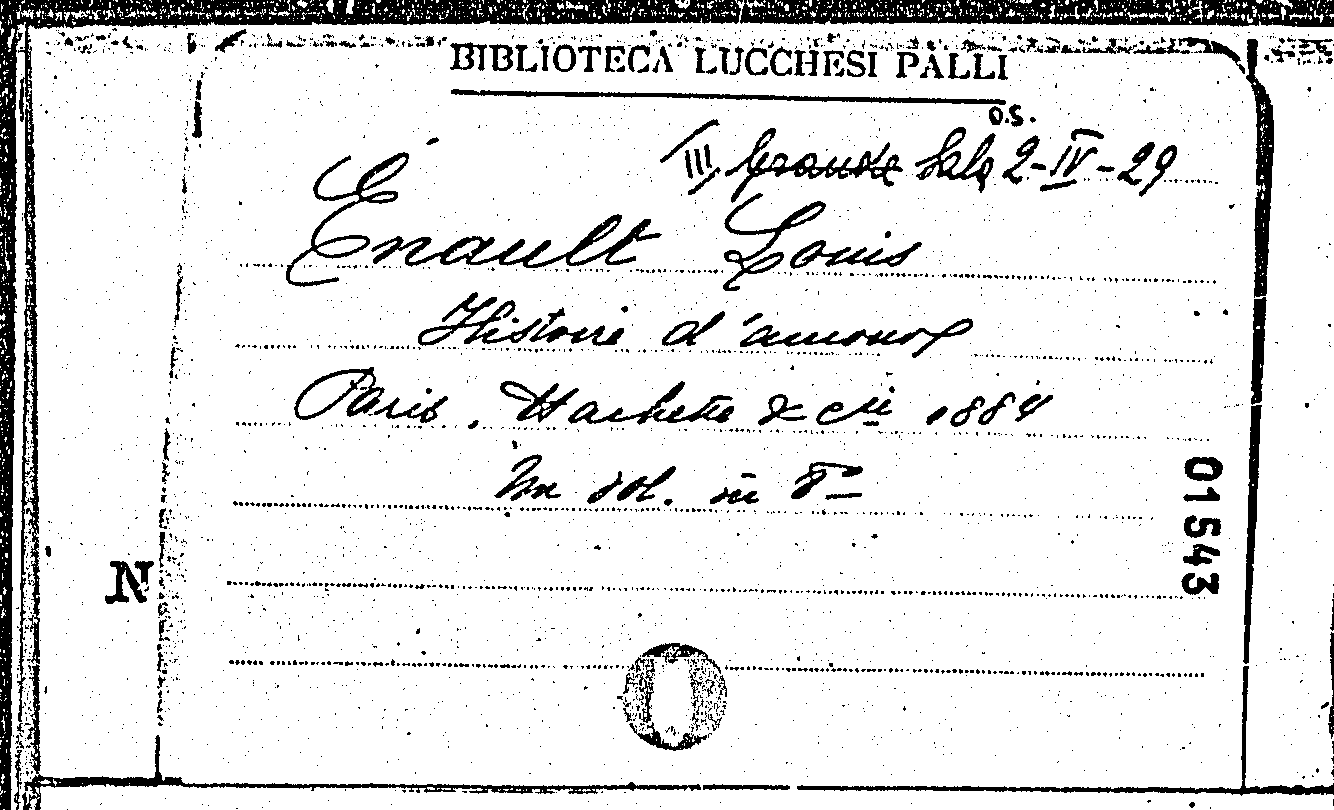 BIBLIOTECA LUCCHESI PALLI
O.S.
III, Grande Sala 2-IV-29
Énault Louis
Histoire d'amour
Paris. Hachette & Cie 1884
Un vol. in 8º
01543
N